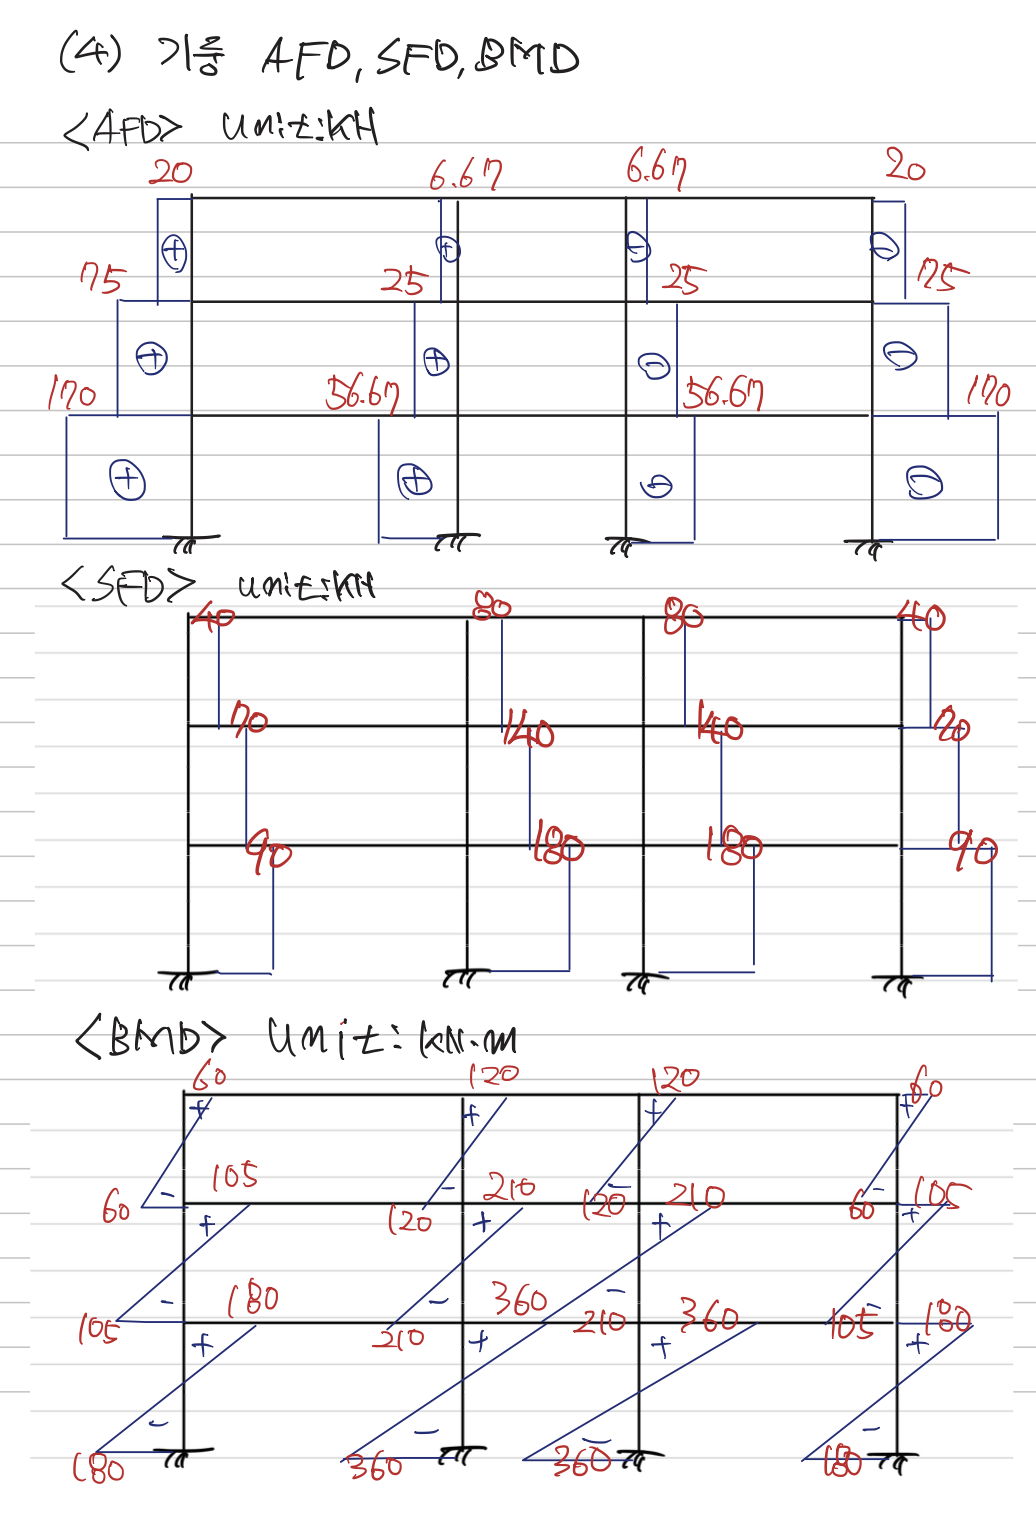 (4) 기둥 AFD, SFD, BMD
<AFD> Unit:KH
20 6.67 6.67 20
+ + - -
75 25 25 75
+ + - -
170 56.67 56.67 170
+ + - -
<SFD> unit:KH
40 80 80 40
70 140 140 70
90 180 180 90
<BMD> Unit: kN·m
60 120 120 60
+ + + +
- - - -
105 210 210 105
60 120 120 60
+ + + +
- - - -
180 360 360 180
105 210 210 105
+ + + +
- - - -
180 360 360 180